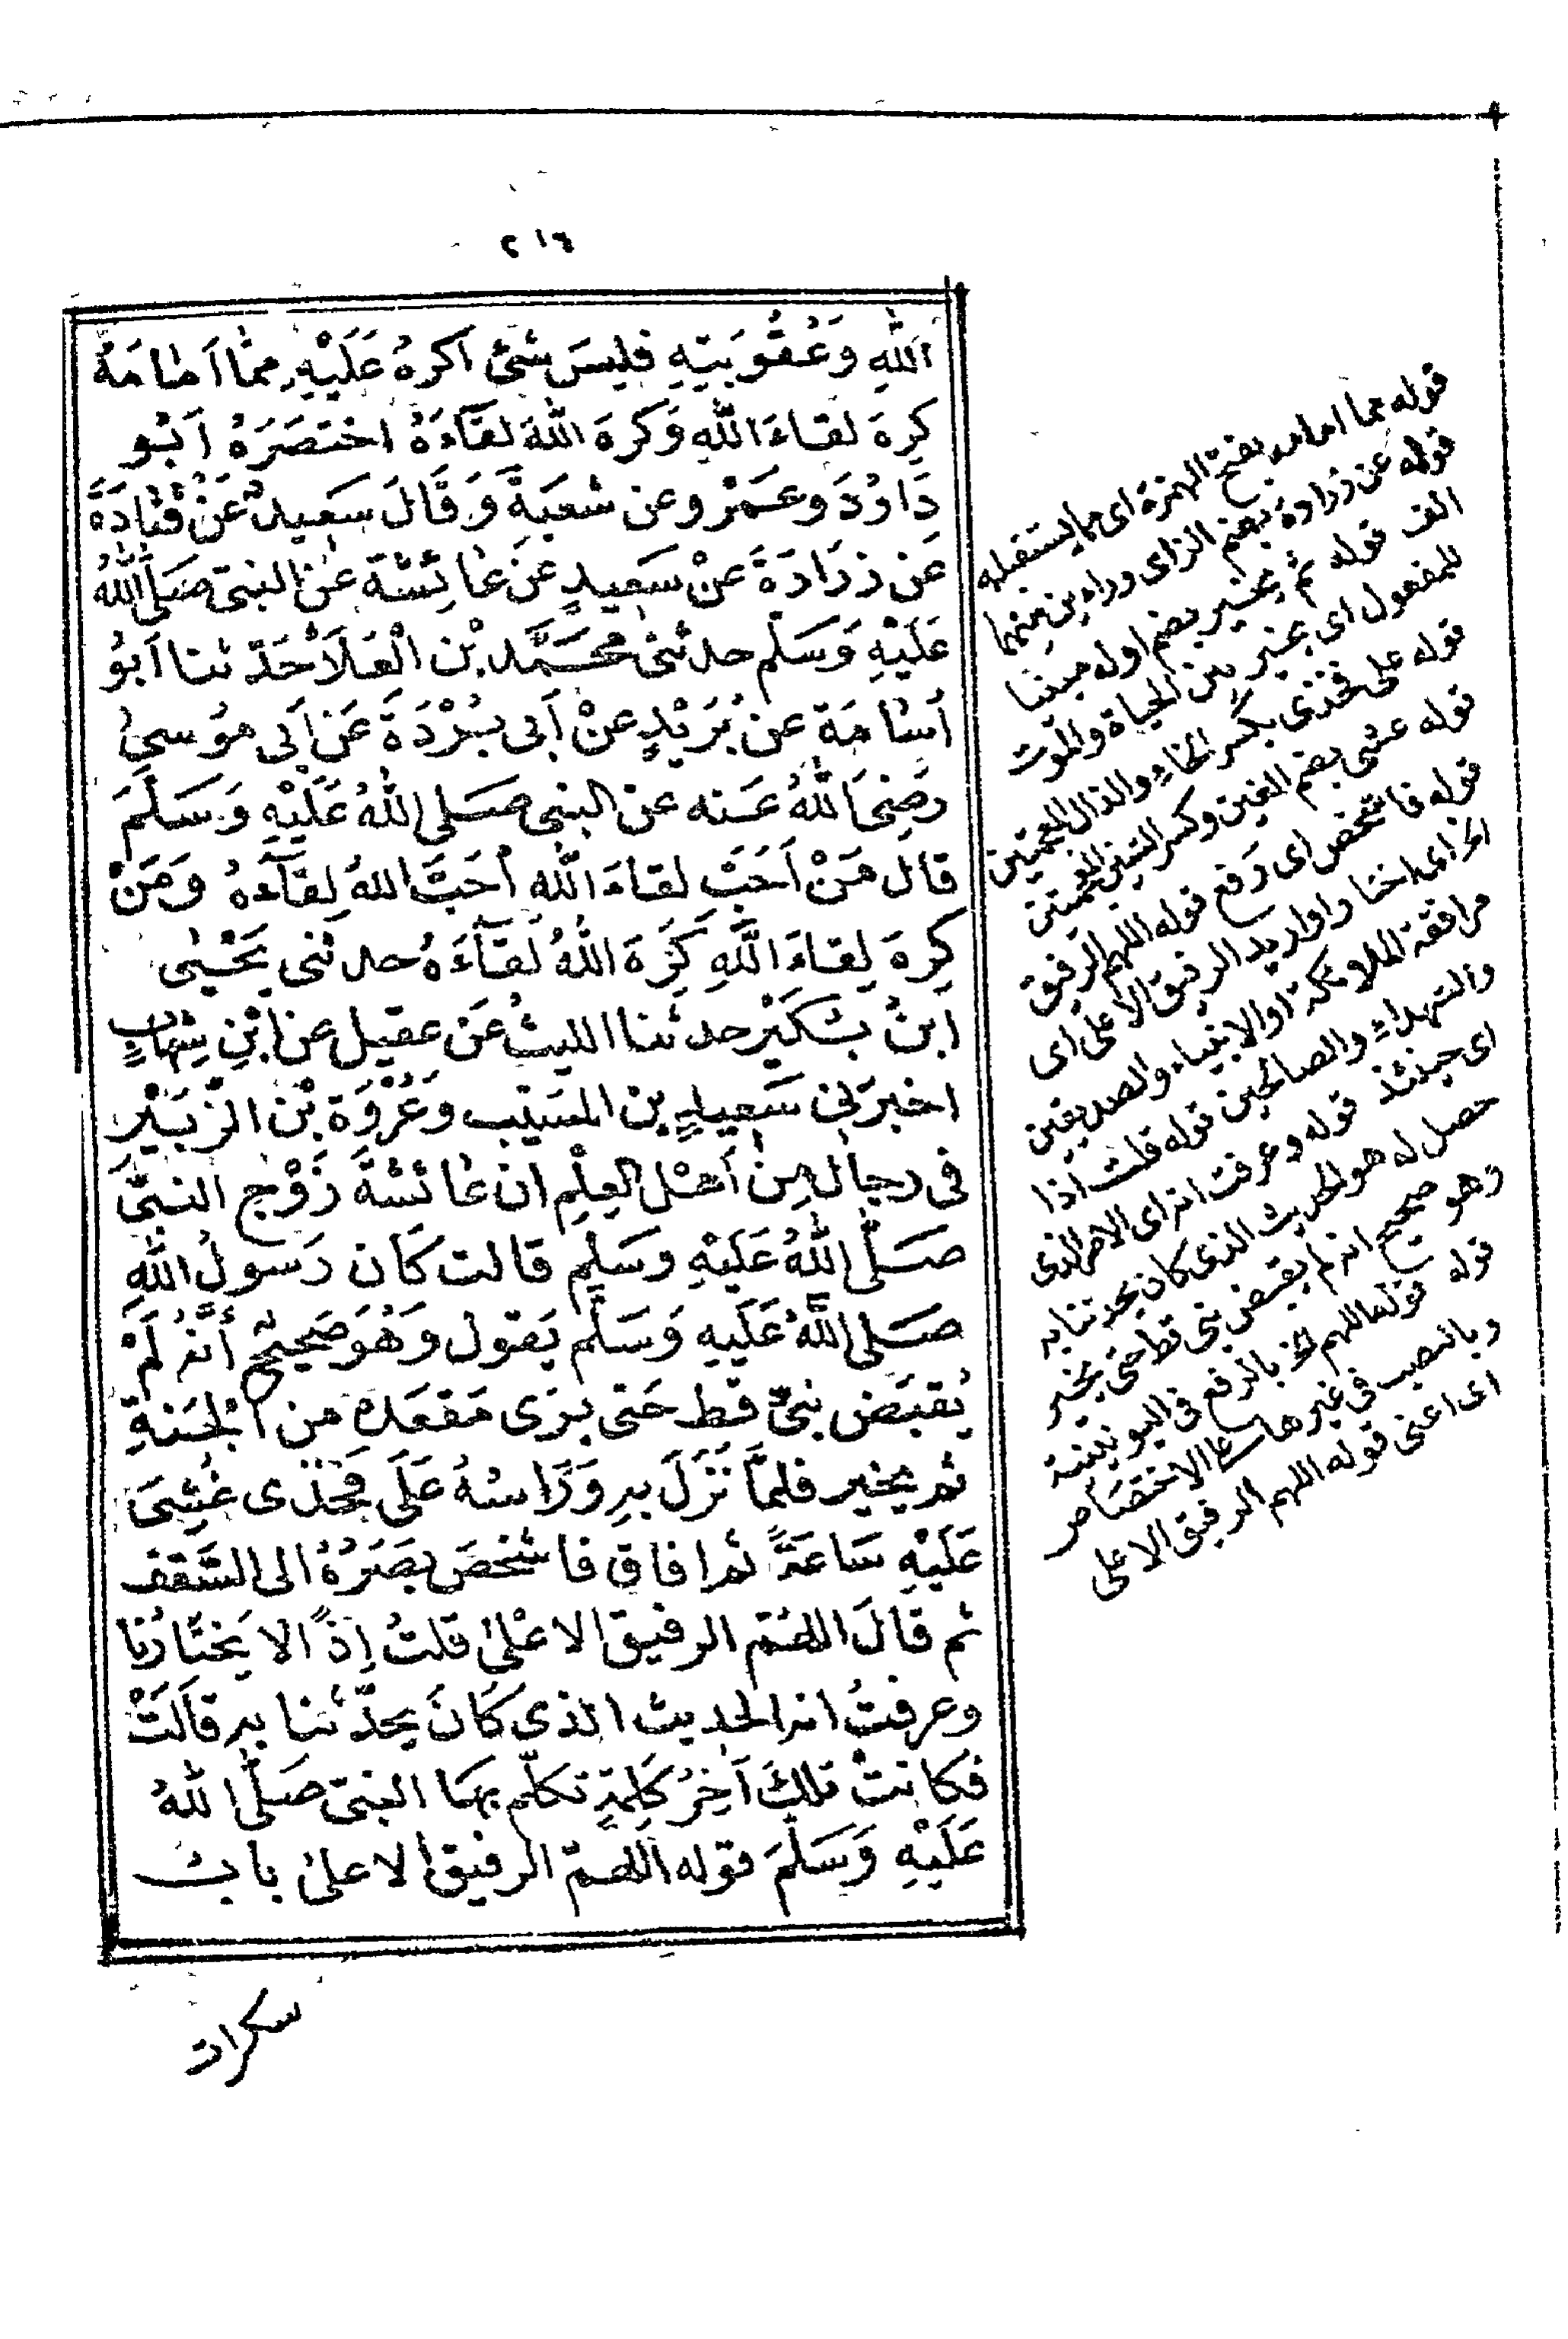 ٢١٦
اللهِ وَعُقُوبَتِهِ فليسَ شئ اَكرهُ عَلَيْهِ مما اَمَامَهُ
كرِهَ لقاءَ اللهِ وَكرهَ اللهُ لقَآءَهُ اختصَرَهُ اَبُو
دَاوُدَ وعَمْرو عن شعبَةَ وَقَالَ سَعِيدٌ عَنْ قَتَادَةَ
عَن زرَارَةَ عَنْ سَعِيدٍ عَن عَائِشَةَ عَن النبي صَلَّى اللهُ
عَلَيْهِ وَسَلم حدثنى محَمَّد بْن الْعَلَاءْ حَدّثنا اَبوُ
اُسَامَة عن بُرَيْدٍ عنْ اَبى بُرْدَةَ عَن اَبى موُسىٰ
رضِىَ اللهُ عَنه عن النبى صَلى اللهُ عَلَيْهِ وَسَلمَ
قال مَنْ اَحَبَّ لقاءَ اللهِ اَحَبَّ اللهُ لِقَآءَهُ وَمَنْ
كرِهَ لِقاءَ اللهِ كَرِهَ اللهُ لقَآءَهُ حدثنى يَحْيٰى
اَبنُ بُكَيْر حدثنا الليثُ عَن عقيل عن ابْنِ شِهَابٍ
اخبرَنى سَعِيدٍ بن المسَيّب وَعُرْوَة بْن الزّبَيْرِ
فى رجال مِن اَهْل العِلْمِ ان عَائشةَ زَوْج النبىَّ
صَلَّى اللهُ عَلَيْهِ وسَلم قالت كَان رَسولُ اللهِ
صَلى اللهُ عَلَيهِ وَسَلم يَقول وَهُوَ صَحِيحٌ أَنَّهُ لَمْ
يُقبَض نبىّ قط حَتى يرَى مَقعَدَه من الْجَنةِ
ثم يخير فلمَّا نَزَلَ بهِ وَرَأسُهُ عَلَى فَخذى غُشِىَ
عَلَيْهِ سَاعَةً ثم افاق فاشخصَ بصَرَهُ الى السَّقف
ثم قالَ اللهُم الرفيق الاعْلىٰ قلتُ اِذًا لا يَختَارُنا
وعرفتُ انه الحديث الذى كَانَ يحدّثنا به قالَتْ
فكانتْ تلكَ آخِرُ كَلِمَةٍ تكلم بهَا النبىّ صَلَّى اللهُ
عَلَيْهِ وَسَلمَ قوله اللهمّ الرفيق الاعلىٰ بابُ
سكرات
قوله مما امامه بفتح الهمزة اى ما يستقبله
قوله عن زرارة بضم الزاى وراءين بينهما
الف قوله ثم يخير بضم اوله مبنيا
للمفعول اى يخير بين الحياة والموت
قوله على فخذى بكسر الخاء والذال المعجمتين
قوله غشى بضم الغين وكسر الشين المعجمتين
قوله فاشخص اى رفع قوله اللهم الرفيق
الخ اى اختار او اريد الرفيق الاعلى اى
مرافقة الملائكة او الانبياء والصديقين
والشهداء والصالحين قوله قلت اذا
اى حينئذ قوله وعرفت انه اى الامر الذى
حصل له هو الحديث الذى كان يحدثنا به
وهو صحيح انه لم يقبض نبى قط حتى يخير
قوله قوله اللهم الخ بالرفع فى اليونينية
وبالنصب فى غيرها على الاختصاص
اى اعنى قوله اللهم الرفيق الاعلى